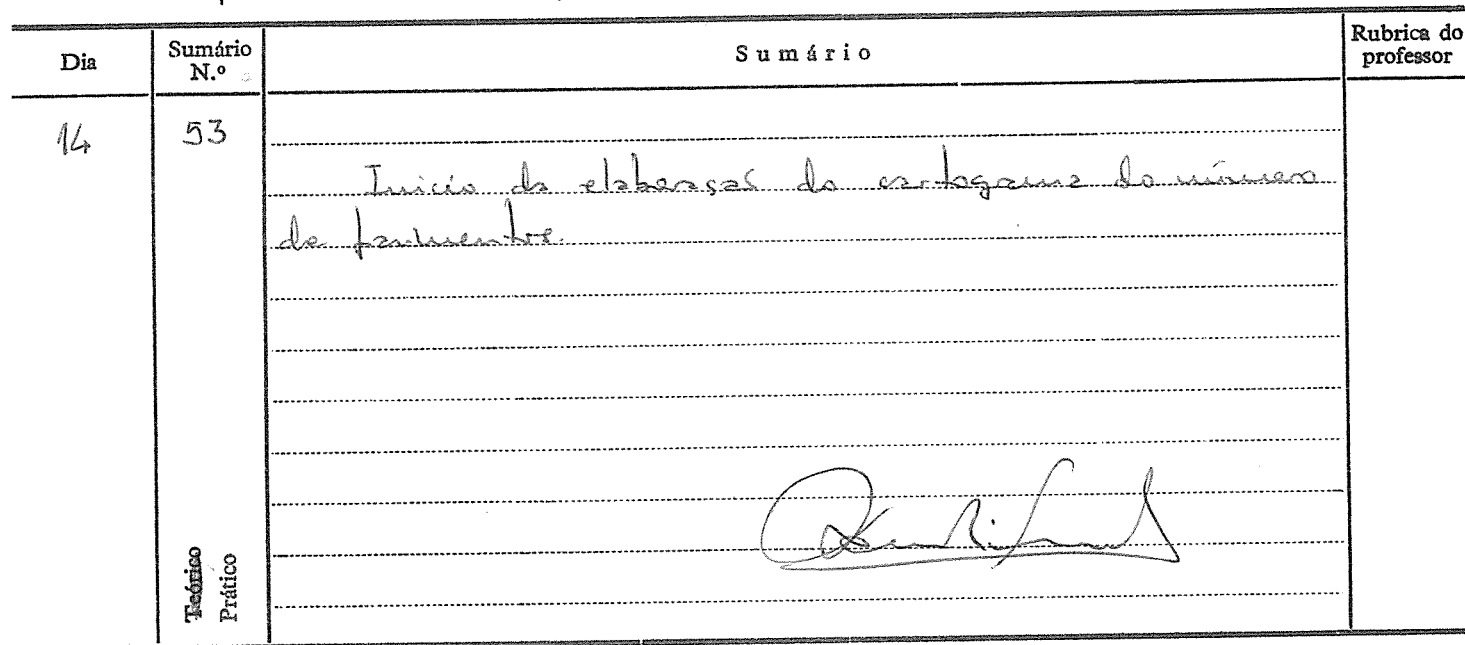 Dia
Sumário N.º
Sumário
Rubrica do professor
14
53
Início da elaboração do cartograma do número
de pavimentos.
Teórico
Prático